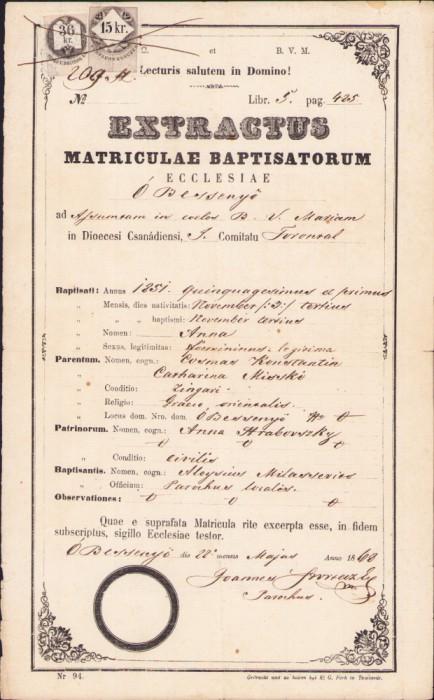 36
kr.
15 kr.
et B. V. M.
209
Lecturis salutem in Domino!
№ Libr. 5. pag. 425
EXTRACTUS
MATRICULAE BAPTISATORUM
ECCLESIAE
Ó Bessenyö
ad Assumtam in coelos B. V. Mariam
in Dioecesi Csanádiensi, I. Comitatu Torontal
Baptisati: Annus 1851. quinquagesimus et primus
„ Mensis, dies nativitatis: November /:3:/ tertius
„ „ „ baptismi: November tertius
„ Nomen: Anna
„ Sexus, legitimitas: Foemininus legitima
Parentum. Nomen, cogn.: Cosmas Konstantin
Catharina Misské
„ Conditio: Zingari
„ Religio: Graeco orientalis
„ Locus dom. Nro. dom. ÓBessenyö
Patrinorum. Nomen, cogn.: Anna Hrabovszky
„ Conditio: Civilis
Baptisantis. Nomen, cogn.: Aloysius
„ Officium: Parochus localis.
Observationes:
Quae e suprafata Matricula rite excerpta esse, in fidem
subscriptus, sigillo Ecclesiae testor.
ÓBessenyö die 22a mensis Majus Anno 1868
Joannes
Parochus.
Nr 94.
Gedruckt und zu haben bei